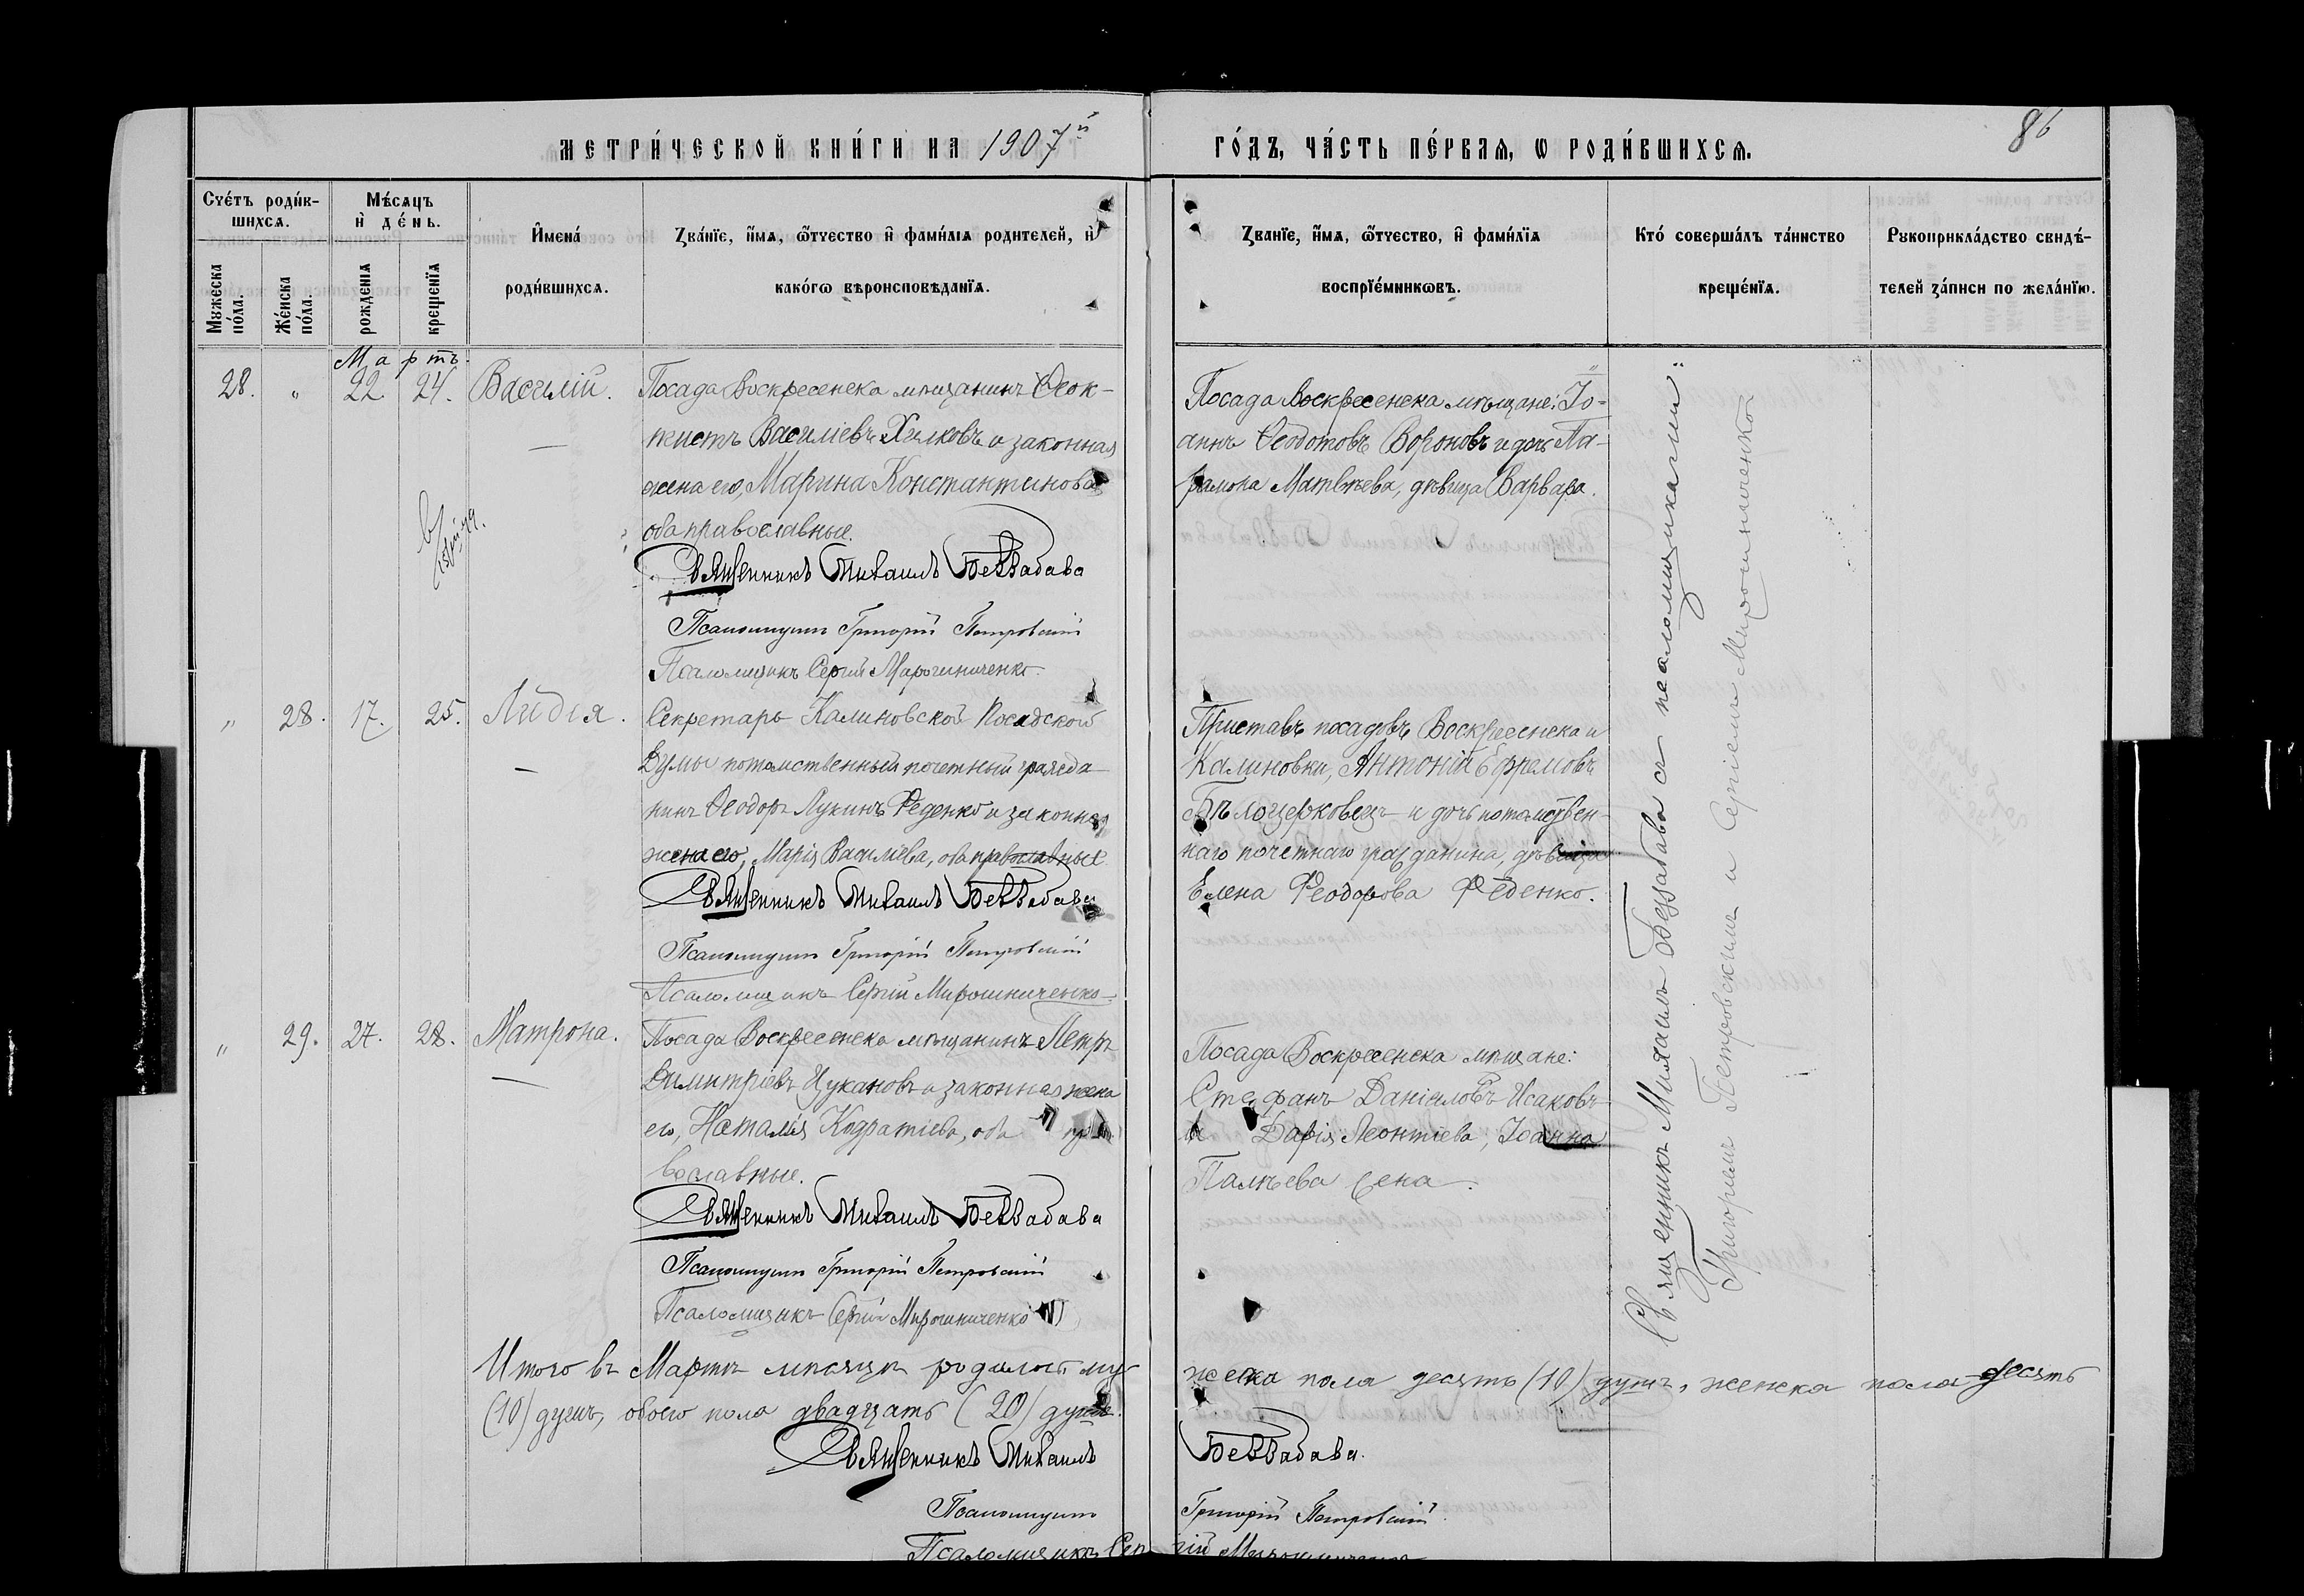 МЕТРИ́ЧЕСКОЙ КНИ́ГИ НА 1907й
ГО́ДЪ, ЧА́СТЬ ПЕ́РВАЯ, Ѡ РОДИ́ВШИХСЯ.
86
Сче́тъ роди́вшихся.
Мѣ́сяцъ и҆ де́нь.
Мужеска по́ла.
Же́нска по́ла.
рожденія
крещенїя
И҆мена́ роди́вшихся.
Зва́нїе, и҆́мя, ѻ҆́тчество и҆ фами́лїя родителей, и҆
како́гѡ вѣроисповѣданїя.
Званїе, и҆́мя, ѻ҆́тчество, и҆ фами́лїя
воспрїе́мникѡвъ.
Кто́ соверша́лъ та́инство
креще́нїя.
Рукоприкла́дство свидѣ́-
телей за́писи по жела́нїю.
Мартъ.
28. " 22. 24. Василій.
Посада Воскресенска мѣщанинъ Ѳеок-
тистъ Василіевъ Хилковъ и законная
жена его, Марина Константинова
оба православные.
Священникъ Михаилъ Беззабава
Псаломщикъ Григорій Петровскій
Псаломщикъ Сергій Мирошниченко.
Посада Воскресенска мѣщане: Іо-
аннъ Ѳеодотовъ Вороновъ и дочь Па-
рамона Матвѣева, дѣвица Варвара.
" 28. 17. 25. Лидія.
Секретарь Калиновской Посадской
Думы потомственный почетный гражда-
нинъ Ѳеодоръ Лукинъ Феденко и законная
жена его, Марія Василіева, оба православные
Священникъ Михаилъ Беззабава
Псаломщикъ Григорій Петровскій
Псаломщикъ Сергій Мирошниченко
Приставъ посадовъ Воскресенска и
Калиновки, Антоній Ефремовъ
Бѣлоцерковецъ и дочь потомствен-
наго почетнаго гражданина, дѣвица
Елена Феодорова Феденко.
" 29. 27. 28. Матрона.
Посада Воскресенска мѣщанинъ Петръ
Димитріевъ Цукановъ и законная жена
его, Наталія Кодратіева, оба пра
вославные.
Священникъ Михаилъ Беззабава
Псаломщикъ Григорій Петровскій
Псаломщикъ Сергій Мирошниченко
Посада Воскресенска мѣщане:
Стефанъ Даніиловъ Исаковъ
и Дарія Леонтіева, Іоанна
Палѣева жена.
Священникъ Михаилъ Беззабава съ псаломщиками:
Григоріемъ Петровскимъ и Сергіемъ Мирошниченко
Итого въ Мартѣ мѣсяцѣ родилось му-
жеска пола десять (10) душъ, женска пола десять
(10) душъ, обоего пола двадцать (20) душъ.
Священникъ Михаилъ Беззабава.
Псаломщикъ Григорій Петровскій
Псаломщикъ Сергій Мирошниченко